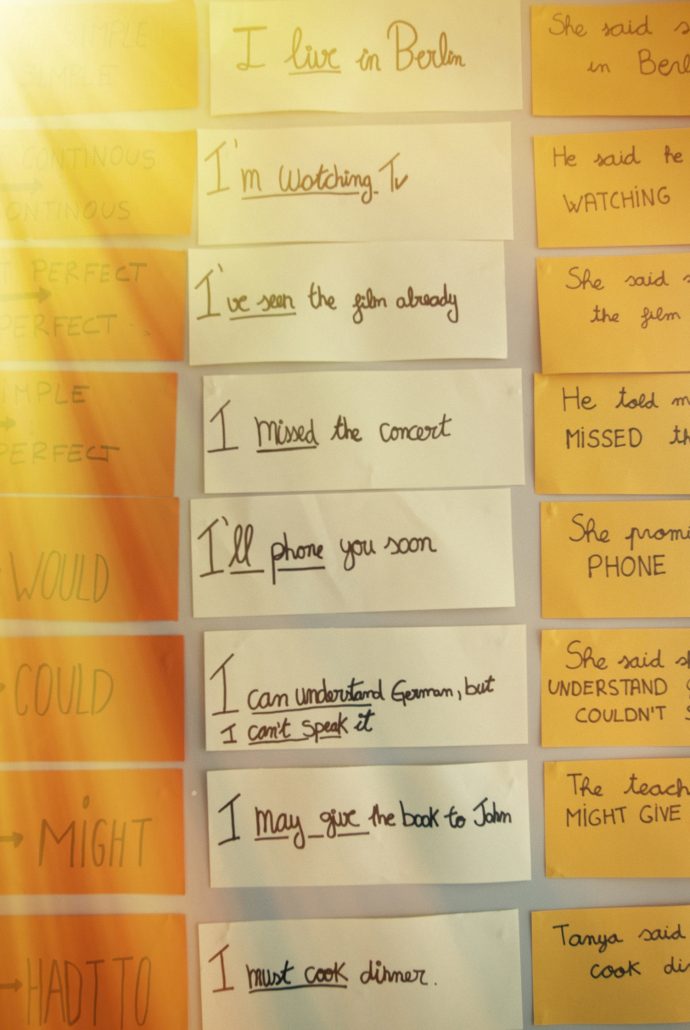 SIMPLE
SIMPLE
I live in Berlin
She said s
in Berl
CONTINOUS
→
ONTINOUS
I'm Watching Tv
He said he
WATCHING
T PERFECT
→
PERFECT
I've seen the film already
She said s
the film
IMPLE
→
PERFECT
I missed the concert
He told m
MISSED th
WOULD
I'll phone you soon
She promi
PHONE
COULD
I can understand German, but
I can't speak it
She said sh
UNDERSTAND G
COULDN'T S
→ MIGHT
I may give the book to John
The teach
MIGHT GIVE
→ HADT TO
I must cook dinner.
Tanya said
cook di